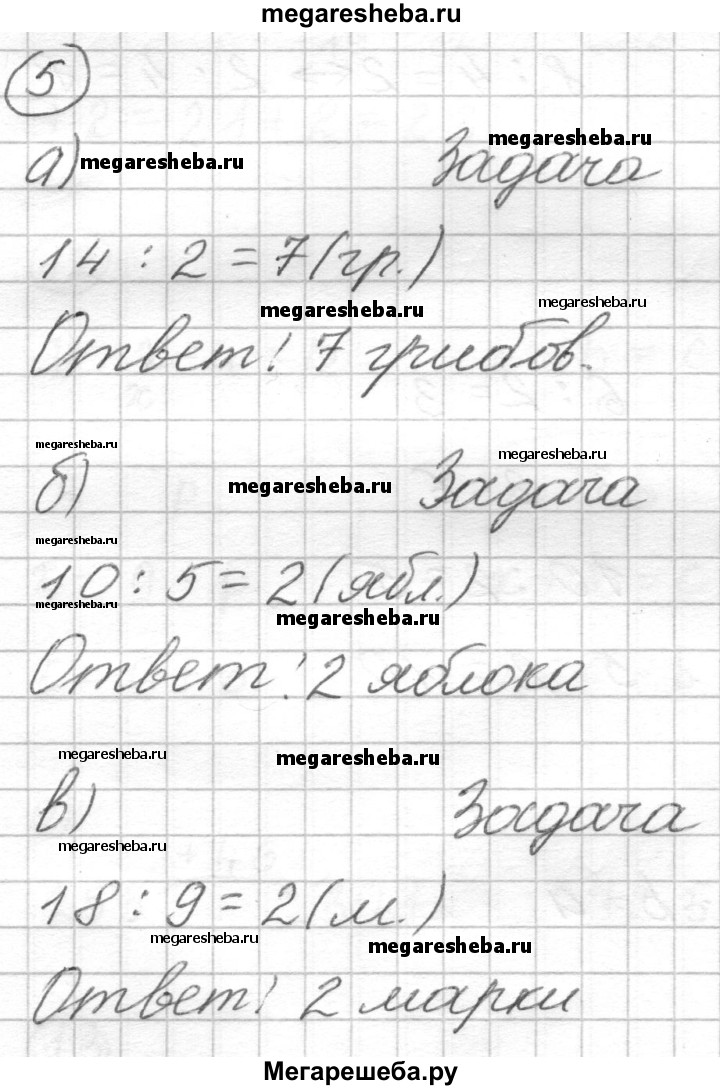 megaresheba.ru
5
а) megaresheba.ru Задача megaresheba.ru
14 : 2 = 7 (гр.)
megaresheba.ru megaresheba.ru
Ответ: 7 грибов.
megaresheba.ru megaresheba.ru
б) megaresheba.ru Задача
megaresheba.ru
10 : 5 = 2 (ябл.)
megaresheba.ru megaresheba.ru
Ответ: 2 яблока
megaresheba.ru megaresheba.ru
в) Задача
megaresheba.ru
18 : 9 = 2 (м.)
megaresheba.ru megaresheba.ru
Ответ: 2 марки
Мегарешеба.ру